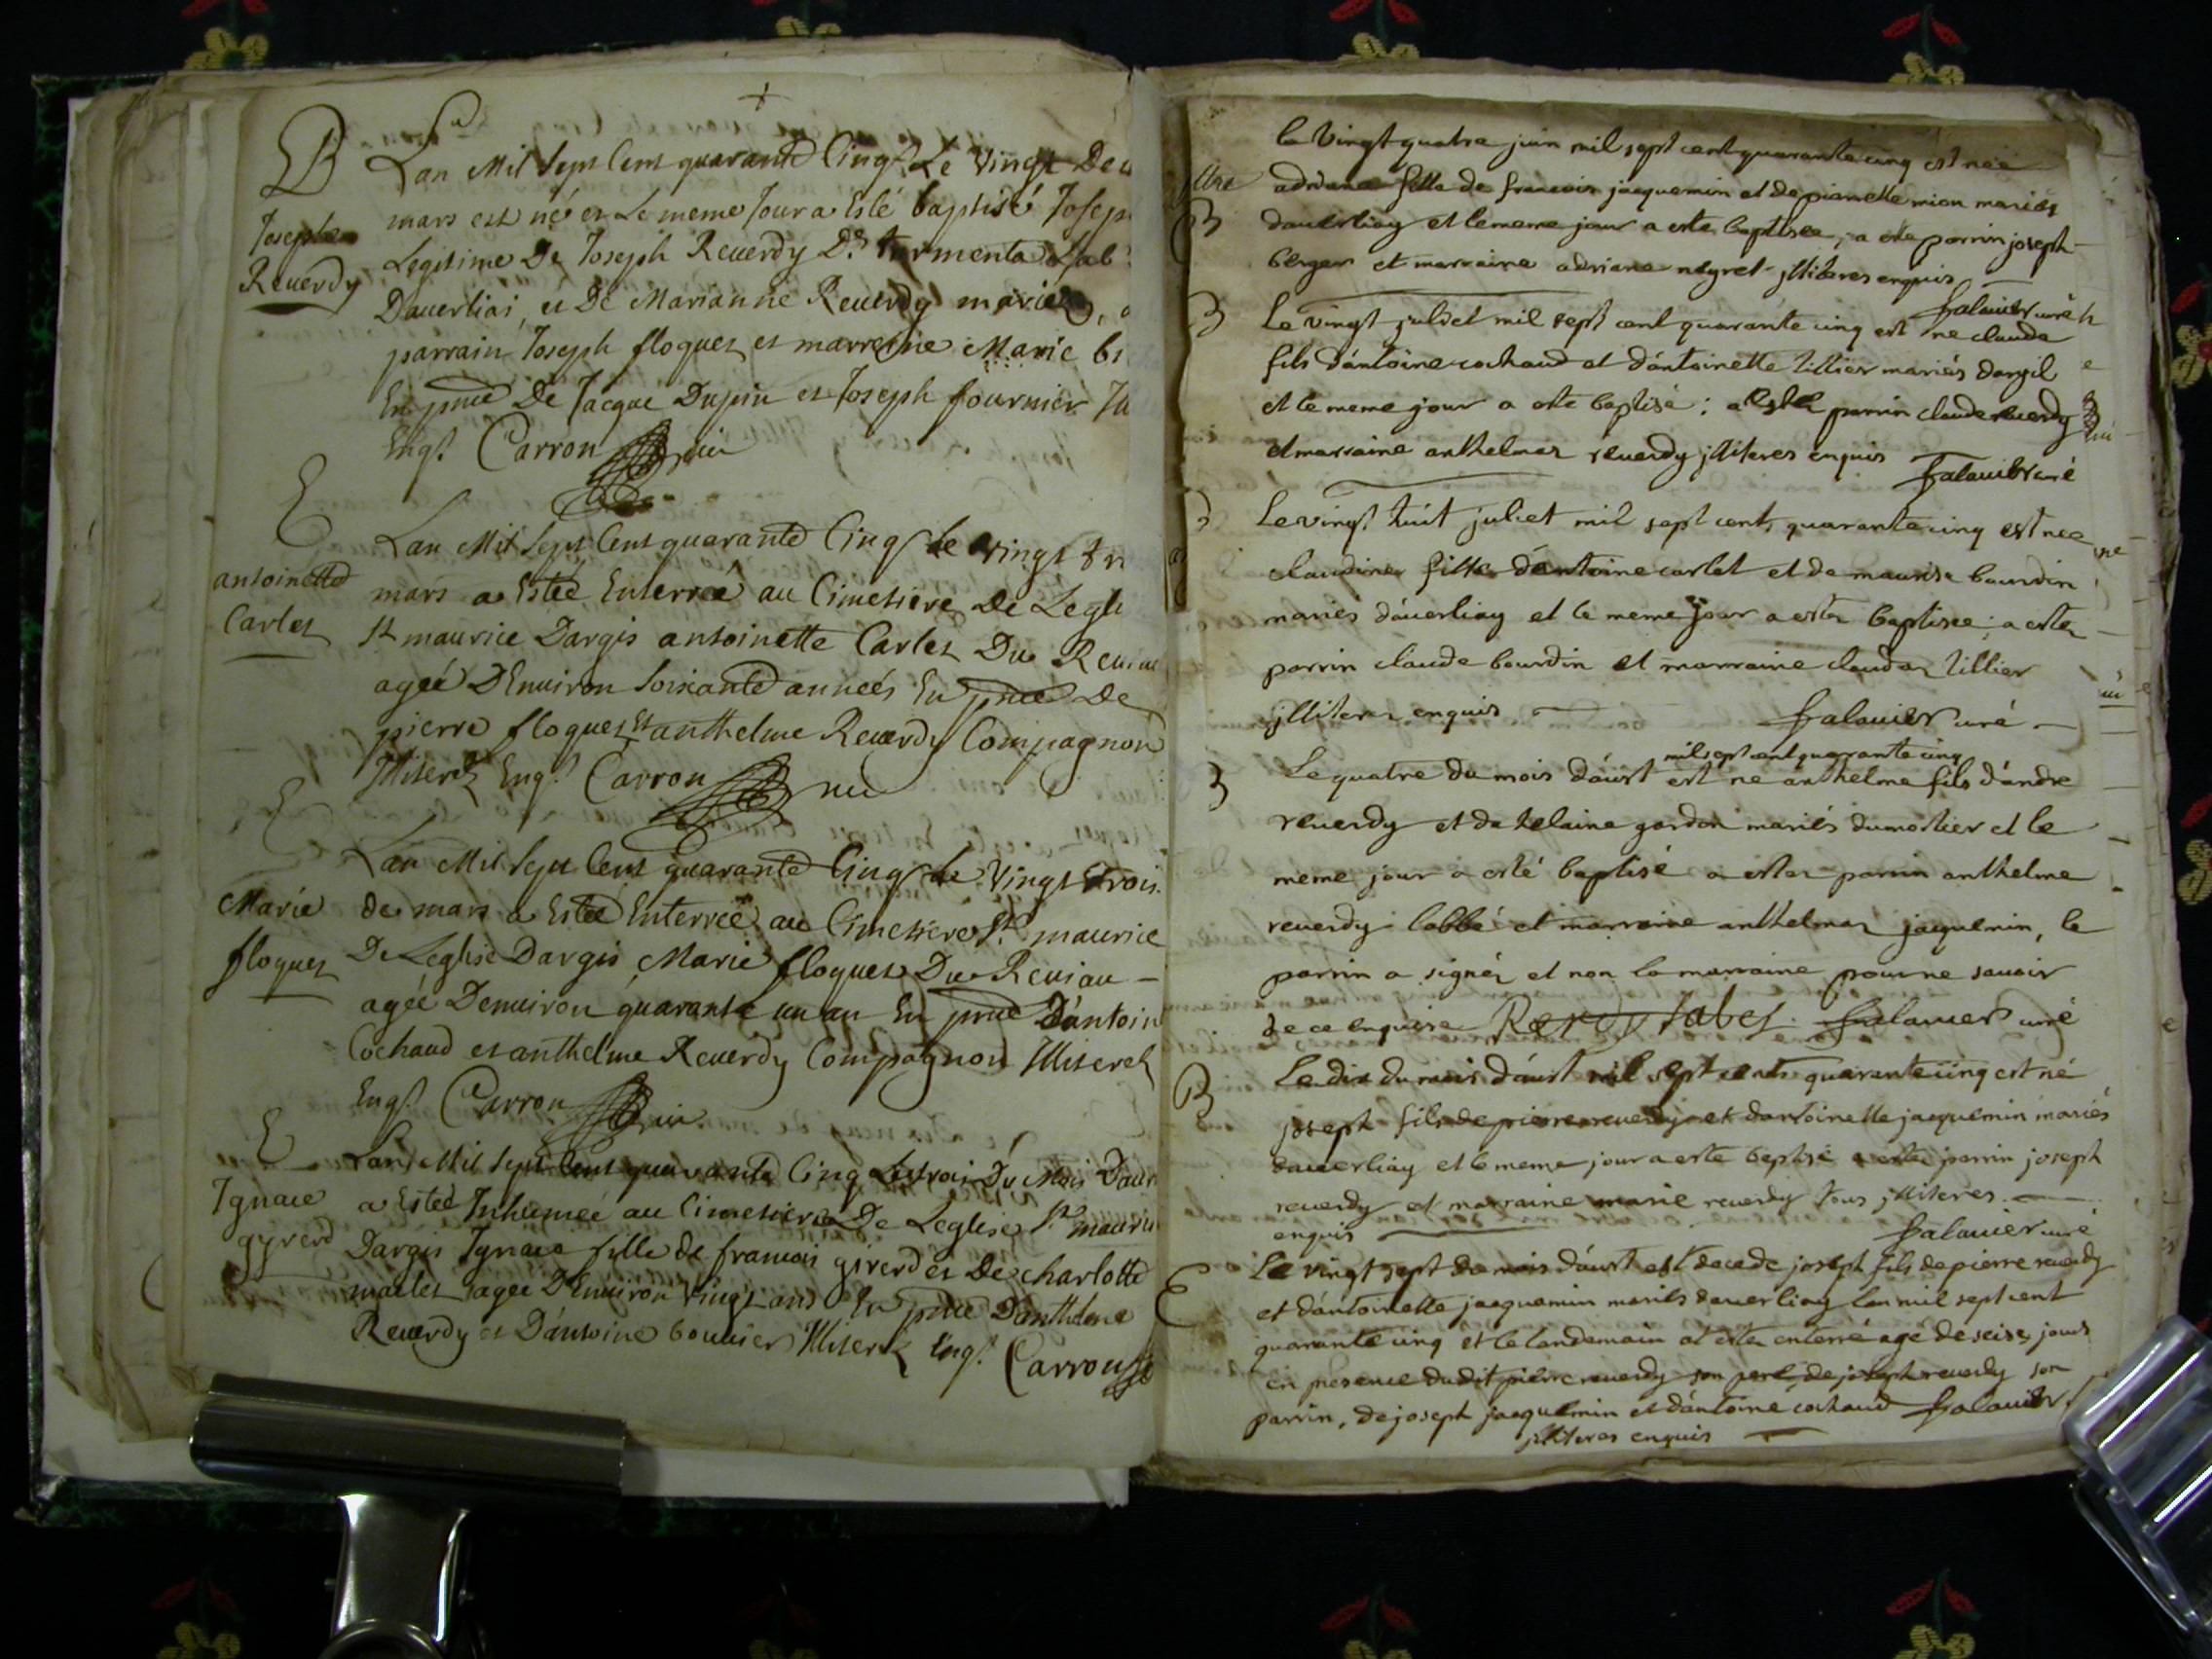 B
Lan Mil Sept Cent quarante Cinq Le Vingt De
mars est né et Le meme Jour a Esté baptisé Josep
Joseph
Reuerdy
Legitime De Joseph Reuerdy Dt tormenta Lab
Dauerliai, et De Marianne Reuerdy mariez,
parrain Joseph floquet et marreine Marie
En pnce De Jacque Dupin et Joseph fournier
Enqs Carron
E
Lan Mil Sept Cent quarante Cinq Le Vingt
antoinette
Carlet
mars a Estée Enterreé au Cimetiere De Legli
St maurice Dargis antoinette Carlet Du Reuiau
agéé DEnuiron Soixante anneés En pnce De
pierre floquet Et anthelme Reuerdy Compagnon
Illiterez Enqs Carron
E
Lan Mil Sept Cent quarante Cinq Le Vingt trois
Marie
floquet
de mars a Estée Enterreé au Cimetiere St maurice
De Leglise Dargis Marie floquet Du Reuiau –
agéé Denuiron quarante un an En pnce Dantoin
Cochaud et anthelme Reuerdy Compagnon Illiterez
Enqs Carron
E
Lan Mil Sept Cent quarante Cinq Le trois Du Mois Daur
Ignace
gyrerd
a Estéé Inhumeé au Cimetiere De Leglise St mauri
Dargis Ignace fille de francois girerd et De charlotte
martet agéé DEnuiron Vingt ans En pnce Danthelme
Reuerdy et Dantoine bouuier Illiterez Enqs Carron
le Vingt quatre juin mil sept cent quarante cinq est née
adriane fille de francois jacquemin et de pierrette mion mariés
B
dauerliay et le meme jour a este baptisée, a este parrin joseph
berger et marraine adriane neyret jlliteres enquis
falauier curé
B
Le vingt juliet mil sept cent quarante cinq est né claude
fils dántoine cochaud et dántoinette tillier mariés dargil
et le meme jour a este baptisé; a este parrin claude reuerdy
et marraine anthelmaz reuerdy jlliteres enquis falauier curé
B
Le vingt huit juliet mil sept cent quarante cinq est née
claudine fille dántoine carlet et de maurise bourdin
mariés dáuerliay et le meme jour a estez baptisée; a estez
parrin claude bourdin et marraine claudaz tillier
jlliteres enquis falauier curé
B
mil sept cent quarante cinq
Le quatre du mois dáust est né anthelme fils dándre
reuerdy et de helaine gordon mariés dumortier et le
meme jour a esté baptisé a estez parrin anthelme
reuerdy labbé et marraine anthelmaz jaquemin, le
parrin a signéz et non la marraine pour ne sauoir
de ce enquise Rerdy labes falauier curé
B
Le dix du mois dáust mil sept cents quarante cinq est né
joseph fils de pierre reuerdy et dantoinette jacquemin mariés
dauerliay et le meme jour a este baptisé a estez parrin joseph
reuerdy et marraine marie reuerdy tous jlliteres
enquis falauier curé
E
Le vingt sept du mois dáust est decede joseph fils de pierre reuerdy
et dántoinette jacquemin mariés dauerliay lan mil sept cent
quarante cinq et le landemain at estez enterré agé de seize jours
en presence dudit pierre reuerdy son pere, de joseph reuerdy son
parrin, de joseph jacquemin et dántoine cochaud falauier
jlliteres enquis